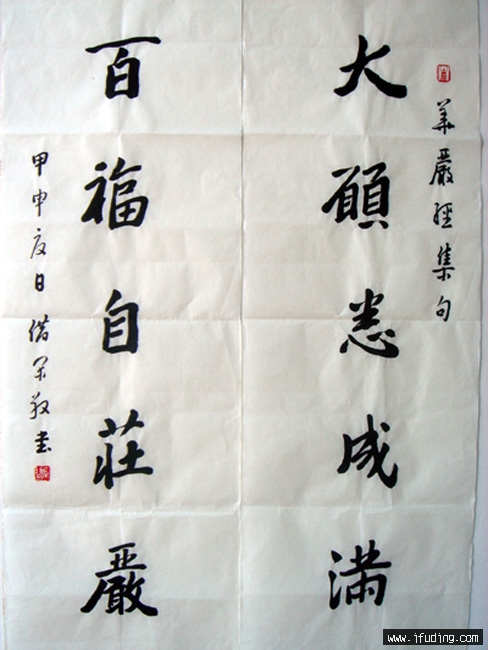 華嚴經集句
大願悉成滿
百福自莊嚴
甲申夏日敬書
www.ifuding.com